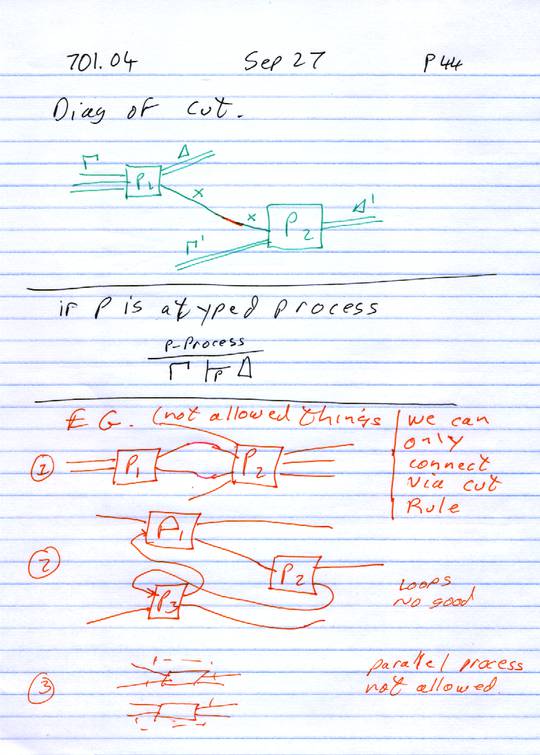 701.04 Sep 27 P44
Diag of cut.
Γ P1 Δ
x
x P2 Δ'
Γ'
if P is a typed process
P-Process
Γ ⊢P Δ
E.G. (not allowed things
we can
only
connect
via cut
Rule
① P1 P2
② P1
P2
P3
Loops
no good
③
parallel process
not allowed